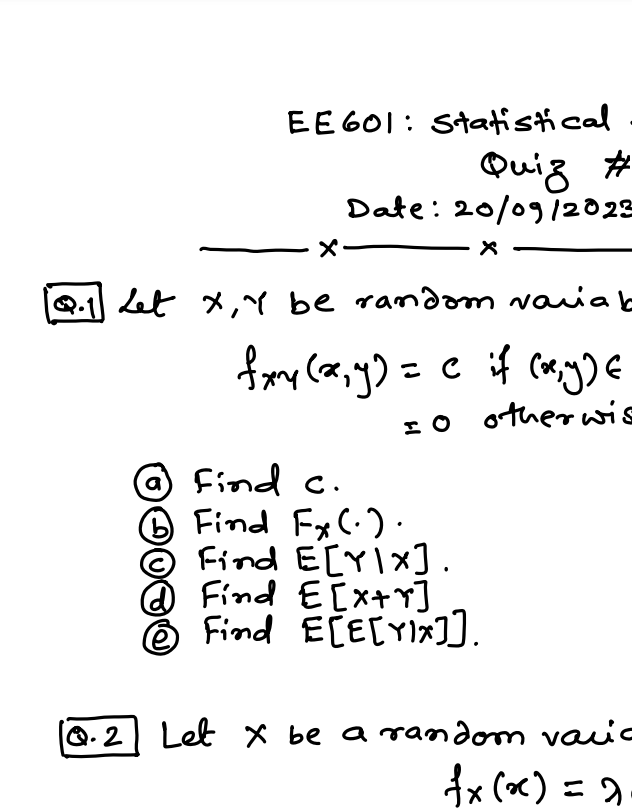 EE601: Statistical
Quiz #
Date: 20/09/2023
Q.1 Let X,Y be random variab
f_XY(x,y) = c if (x,y) ∈
= 0 otherwis
(a) Find c.
(b) Find F_X(·).
(c) Find E[Y|X].
(d) Find E[X+Y]
(e) Find E[E[Y|X]].
Q.2 Let X be a random varia
f_X(x) = λ